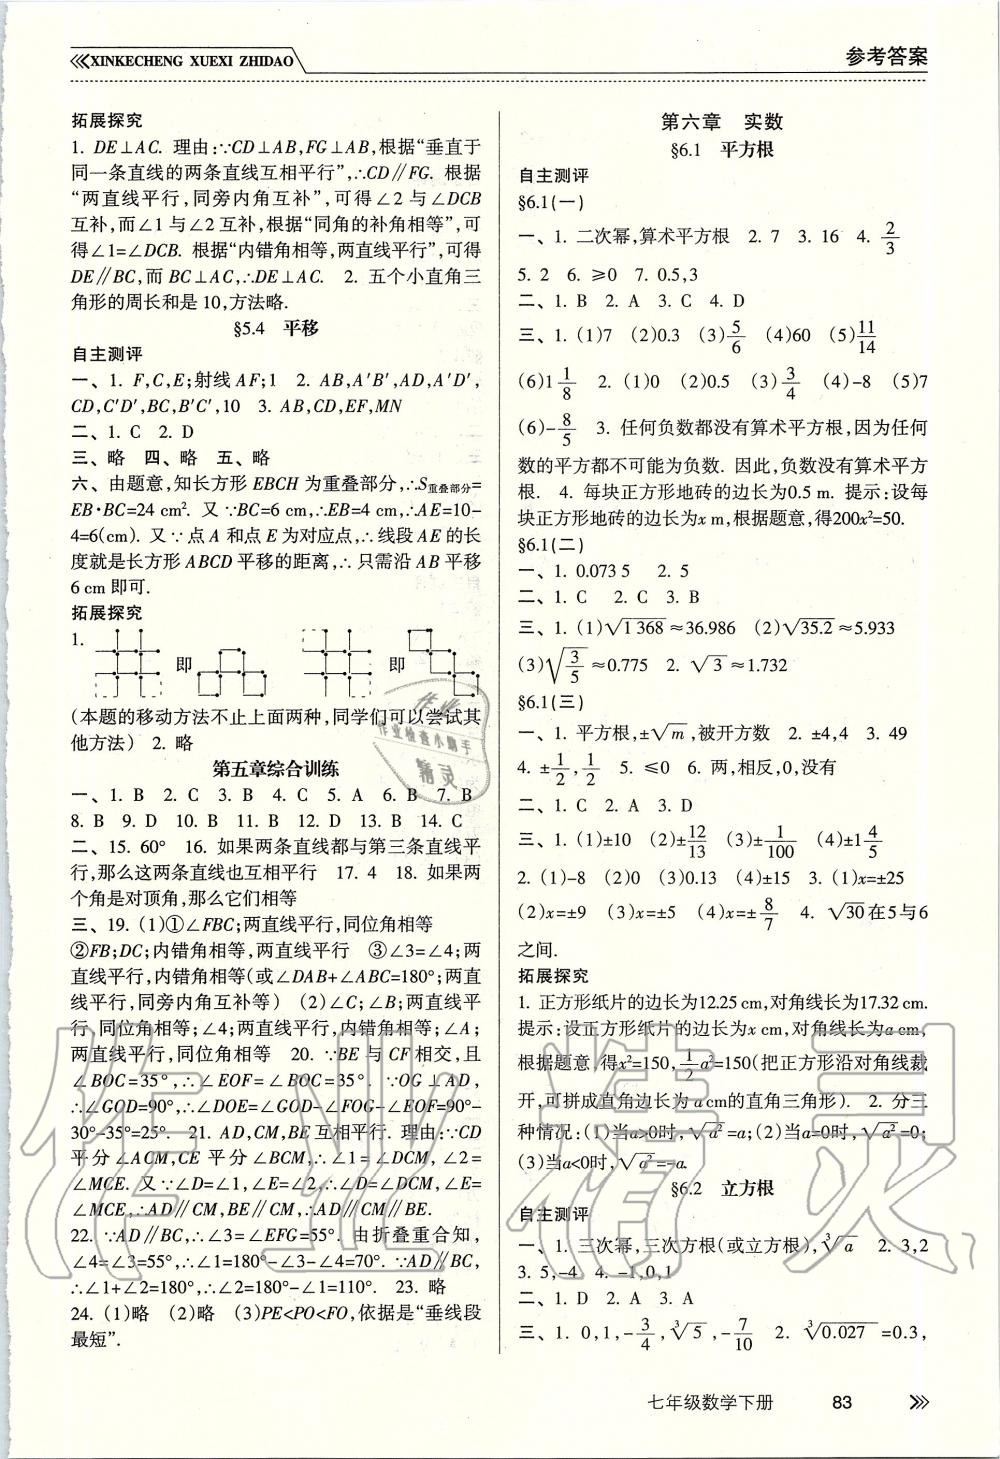 XINKECHENG XUEXI ZHIDAO
参考答案
拓展探究
1. DE⊥AC. 理由:∵CD⊥AB,FG⊥AB,根据“垂直于
同一条直线的两条直线互相平行”,∴CD∥FG. 根据
“两直线平行,同旁内角互补”,可得∠2与∠DCB
互补,而∠1与∠2互补,根据“同角的补角相等”,可
得∠1=∠DCB. 根据“内错角相等,两直线平行”,可得
DE∥BC,而BC⊥AC,∴DE⊥AC. 2. 五个小直角三
角形的周长和是10,方法略.
§5.4 平移
自主测评
一、1. F,C,E;射线AF;1 2. AB,A′B′,AD,A′D′,
CD,C′D′,BC,B′C′,10 3. AB,CD,EF,MN
二、1. C 2. D
三、略 四、略 五、略
六、由题意,知长方形EBCH为重叠部分,∴S重叠部分=
EB·BC=24 cm². 又∵BC=6 cm,∴EB=4 cm,∴AE=10-
4=6(cm). 又∵点A和点E为对应点,∴线段AE的长
度就是长方形ABCD平移的距离,∴只需沿AB平移
6 cm即可.
拓展探究
1. 即 即
(本题的移动方法不止上面两种,同学们可以尝试其
他方法) 2. 略
第五章综合训练
一、1. B 2. C 3. B 4. C 5. A 6. B 7. B
8. B 9. D 10. B 11. B 12. D 13. B 14. C
二、15. 60° 16. 如果两条直线都与第三条直线平
行,那么这两条直线也互相平行 17. 4 18. 如果两
个角是对顶角,那么它们相等
三、19. (1)①∠FBC;两直线平行,同位角相等
②FB;DC;内错角相等,两直线平行 ③∠3=∠4;两
直线平行,内错角相等(或∠DAB+∠ABC=180°;两直
线平行,同旁内角互补等) (2)∠C;∠B;两直线平
行,同位角相等;∠4;两直线平行,内错角相等;∠A;
两直线平行,同位角相等 20. ∵BE与CF相交,且
∠BOC=35°,∴∠EOF=∠BOC=35°. ∵OG⊥AD,
∴∠GOD=90°,∴∠DOE=∠GOD-∠FOG-∠EOF=90°-
30°-35°=25°. 21. AD,CM,BE互相平行. 理由:∵CD
平分∠ACM,CE平分∠BCM,∴∠1=∠DCM,∠2=
∠MCE. 又∵∠D=∠1,∠E=∠2,∴∠D=∠DCM,∠E=
∠MCE,∴AD∥CM,BE∥CM,∴AD∥CM∥BE.
22. ∵AD∥BC,∴∠3=∠EFG=55°. 由折叠重合知,
∠4=∠3=55°,∴∠1=180°-∠3-∠4=70°. ∵AD∥BC,
∴∠1+∠2=180°,∴∠2=180°-∠1=110°. 23. 略
24. (1)略 (2)略 (3)PE<PO<FO,依据是“垂线段
最短”.
第六章 实数
§6.1 平方根
自主测评
§6.1(一)
一、1. 二次幂,算术平方根 2. 7 3. 16 4. 2/3
5. 2 6. ≥0 7. 0.5,3
二、1. B 2. A 3. C 4. D
三、1. (1)7 (2)0.3 (3)5/6 (4)60 (5)11/14
(6)1 1/8 2. (1)0 (2)0.5 (3)3/4 (4)-8 (5)7
(6)-8/5 3. 任何负数都没有算术平方根,因为任何
数的平方都不可能为负数. 因此,负数没有算术平方
根. 4. 每块正方形地砖的边长为0.5 m. 提示:设每
块正方形地砖的边长为x m,根据题意,得200x²=50.
§6.1(二)
一、1. 0.073 5 2. 5
二、1. C 2. C 3. B
三、1. (1)√1 368≈36.986 (2)√35.2≈5.933
(3)√(3/5)≈0.775 2. √3≈1.732
§6.1(三)
一、1. 平方根,±√m,被开方数 2. ±4,4 3. 49
4. ±1/2,1/2 5. ≤0 6. 两,相反,0,没有
二、1. C 2. A 3. D
三、1. (1)±10 (2)±12/13 (3)±1/100 (4)±1 4/5
2. (1)-8 (2)0 (3)0.13 (4)±15 3. (1)x=±25
(2)x=±9 (3)x=±5 (4)x=±8/7 4. √30在5与6
之间.
拓展探究
1. 正方形纸片的边长为12.25 cm,对角线长为17.32 cm.
提示:设正方形纸片的边长为x cm,对角线长为a cm,
根据题意,得x²=150,1/2a²=150(把正方形沿对角线裁
开,可拼成直角边长为a cm的直角三角形). 2. 分三
种情况:(1)当a>0时,√a²=a;(2)当a=0时,√a²=0;
(3)当a<0时,√a²=-a.
§6.2 立方根
自主测评
一、1. 三次幂,三次方根(或立方根),∛a 2. 3,2
3. 5,-4 4. -1,0,1
二、1. D 2. A 3. A
三、1. 0,1,-3/4,∛5,-7/10 2. ∛0.027=0.3,
七年级数学下册 83
作业精灵
作业
作业检查小助手
精灵